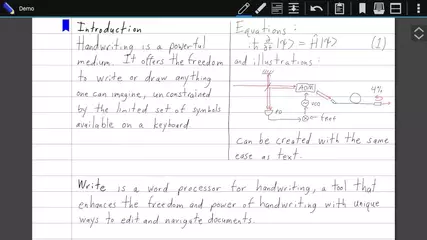 Demo
Introduction
Handwriting is a powerful
medium. It offers the freedom
to write or draw anything
one can imagine, unconstrained
by the limited set of symbols
available on a keyboard.
Equations:
iℏ ∂/∂t |ψ⟩ = Ĥ|ψ⟩ (1)
and illustrations:
AOM
4%
VCO
PD
can be created with the same
ease as text.
Write is a word processor for handwriting, a tool that
enhances the freedom and power of handwriting with unique
ways to edit and navigate documents.